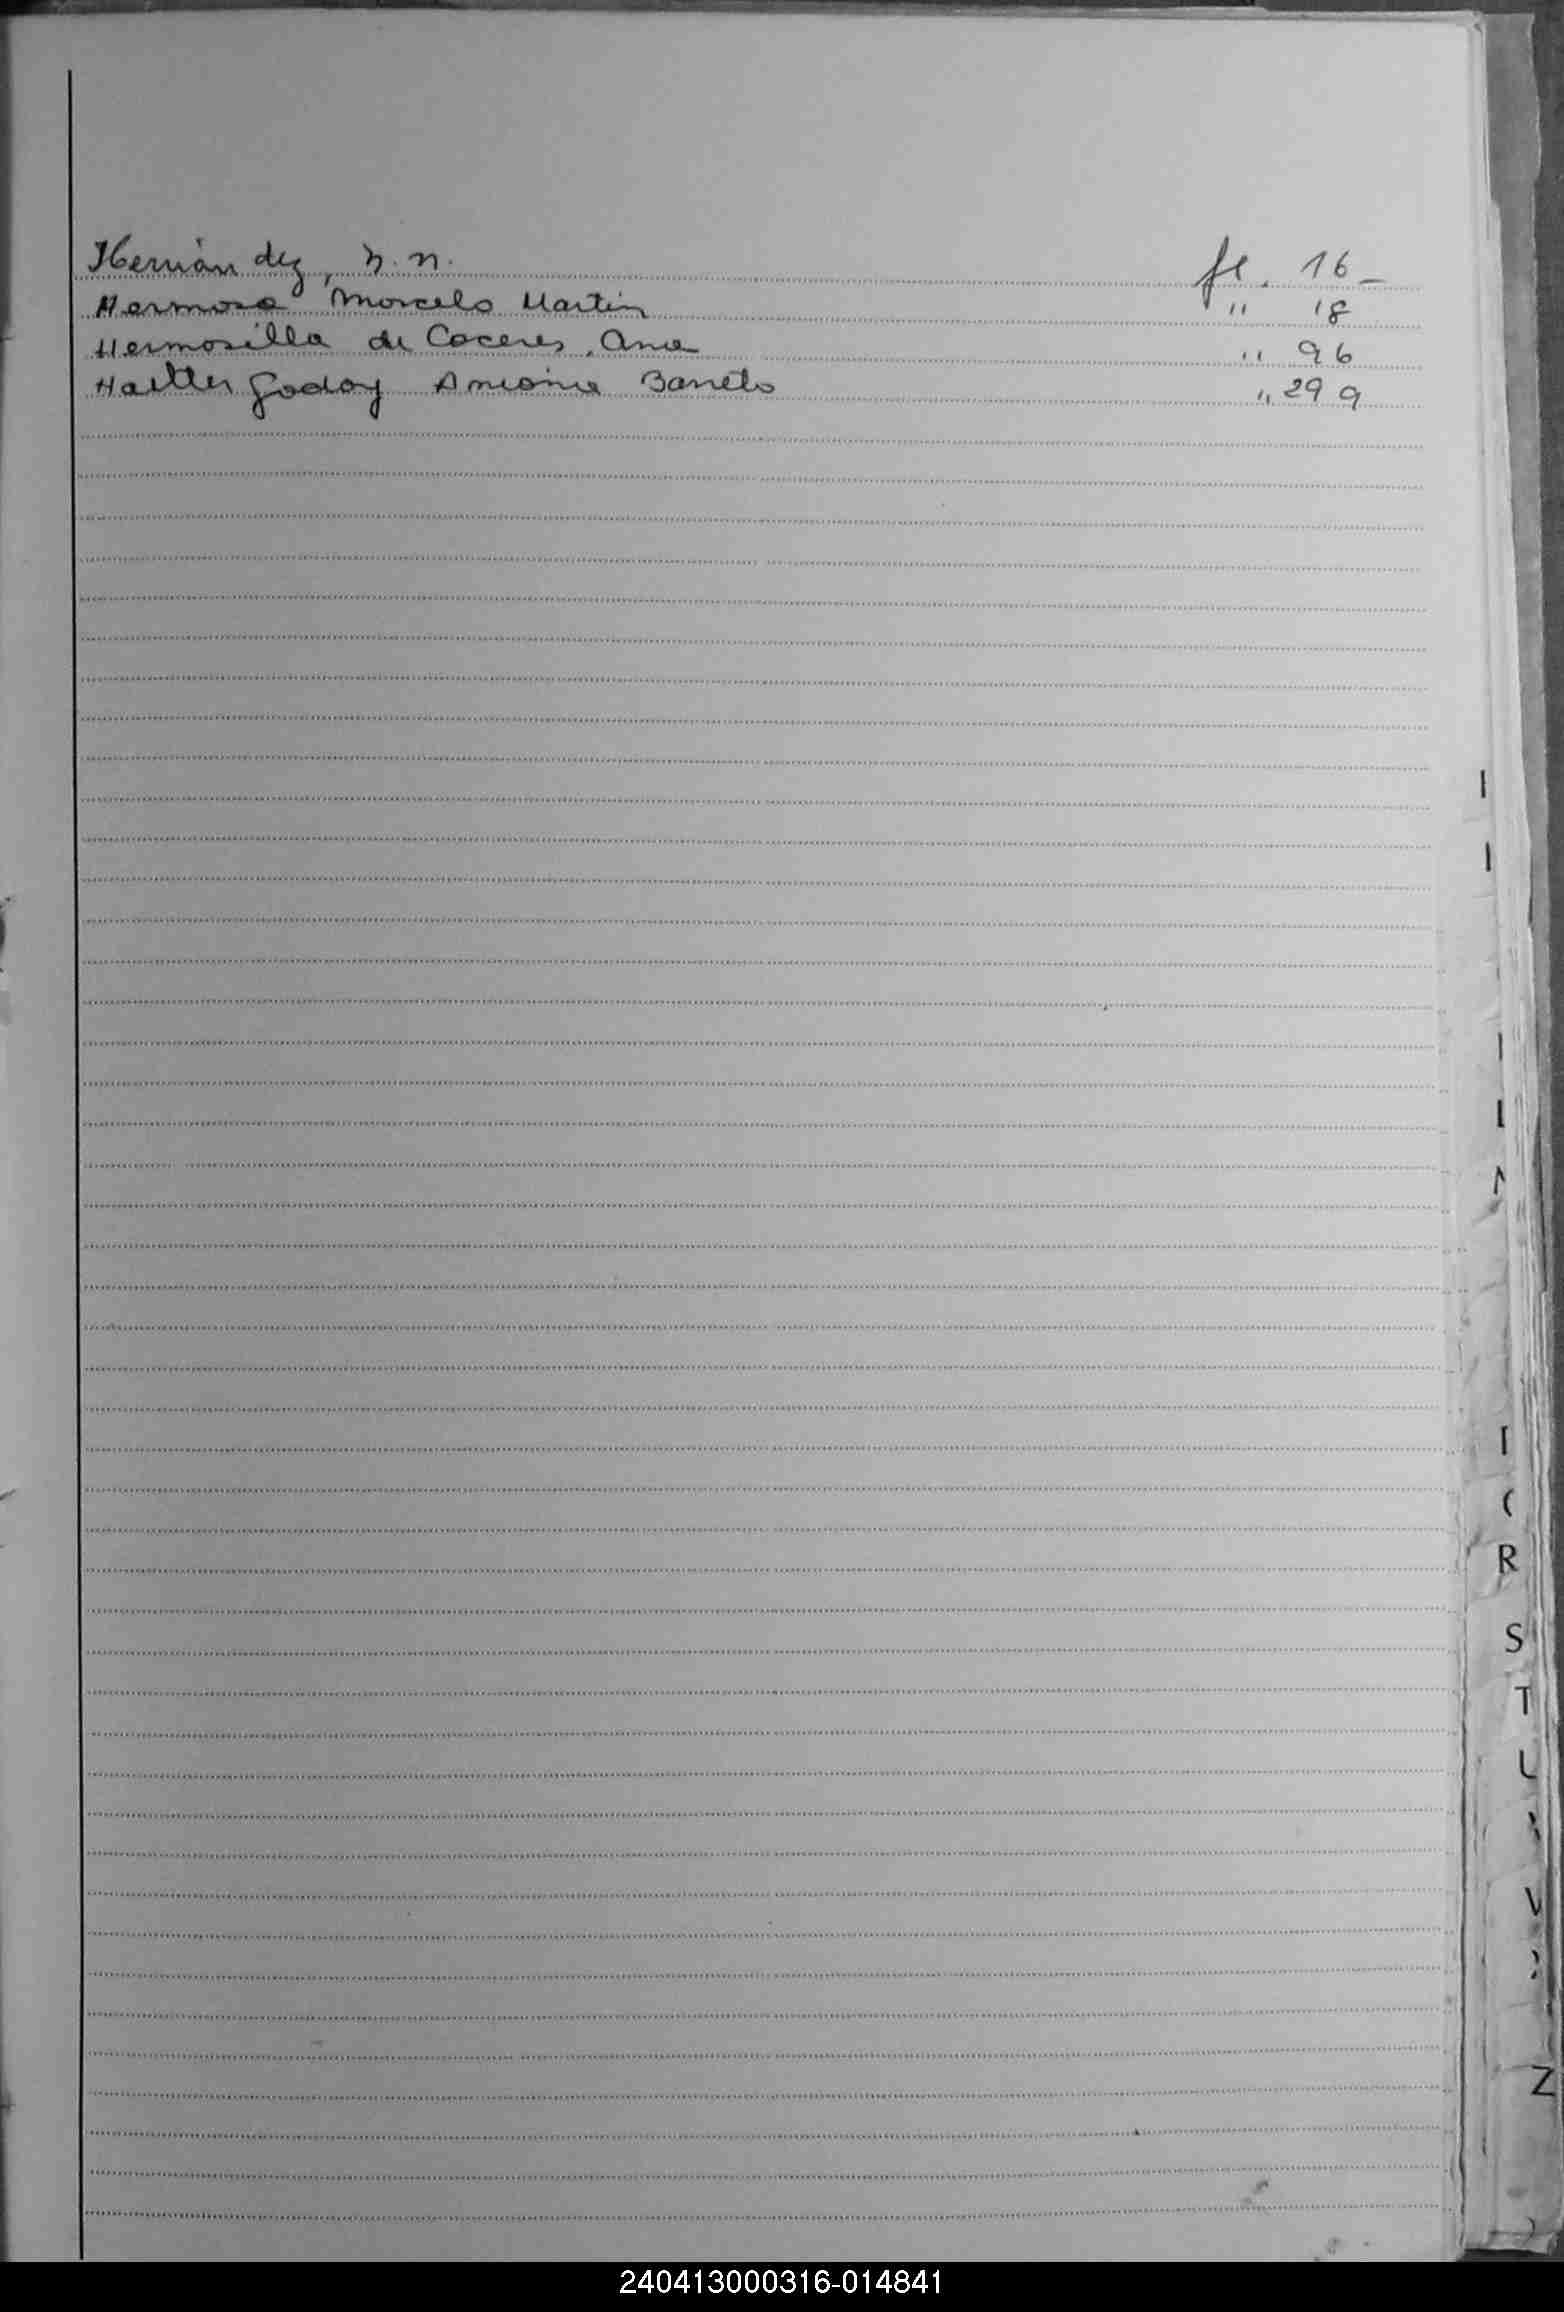 Hernández, N. N. fl. 16-
Hermosa Marcelo Martin " 18
Hermosilla de Caceres, Ana " 96
Godoy Barreto " 299
L
R
S
T
U
V
Z
240413000316-014841